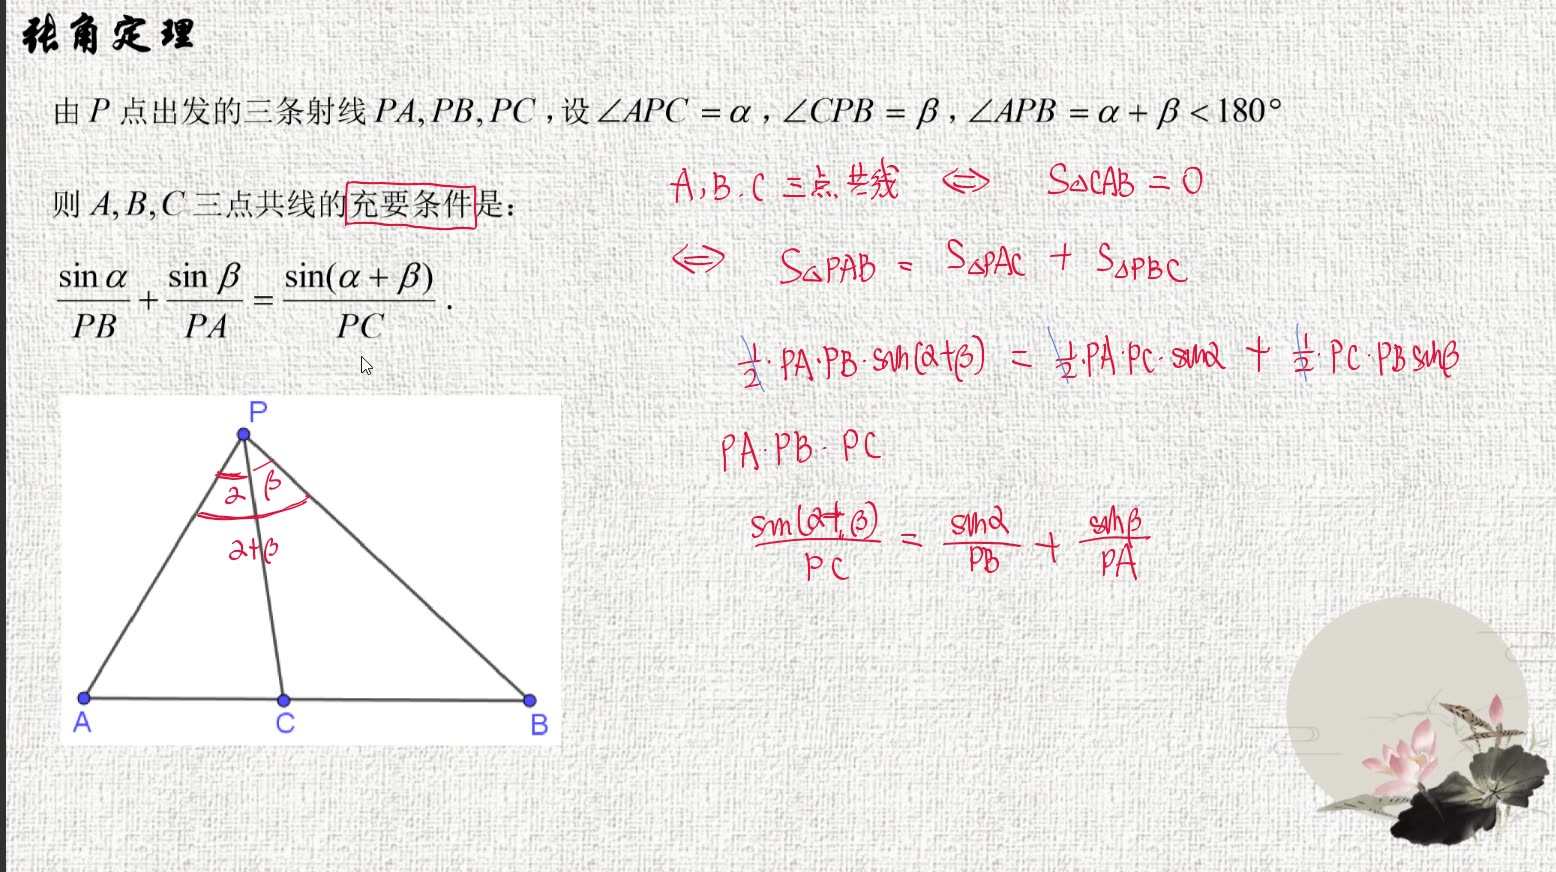 张角定理
由 P 点出发的三条射线 PA, PB, PC ,设 ∠APC = α , ∠CPB = β , ∠APB = α + β < 180°
则 A, B, C 三点共线的充要条件是：
sin α / PB + sin β / PA = sin(α + β) / PC .
A, B. C 三点共线 ⇔ S△CAB = 0
⇔ S△PAB = S△PAC + S△PBC
1/2 · PA·PB·sin(α+β) = 1/2·PA·PC·sinα + 1/2·PC·PB sinβ
PA·PB·PC
sin(α+β) / PC = sinα / PB + sinβ / PA
P
α β
α+β
A C B